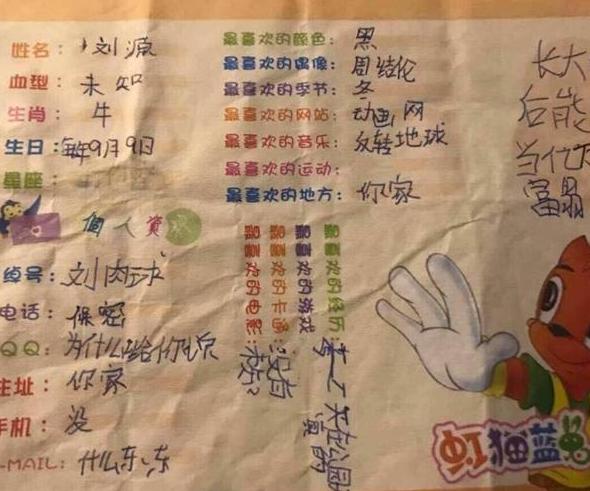 姓名：刘源
血型：未知
生肖：牛
生日：每年9月9日
星座：
個人資
绰号：刘肉球
电话：保密
QQ：为什么给你
住址：你家
手机：没
-MAIL：什么东东
最喜欢的颜色：黑
最喜欢的偶像：周结伦
最喜欢的季节：冬
最喜欢的网站：动画网
最喜欢的音乐：反转地球
最喜欢的运动：
最喜欢的地方：你家
最喜欢的经历：
最喜欢的游戏
最喜欢的卡通：没有
最喜欢的电影：
长大
后能
当亿万
富翁
虹猫蓝